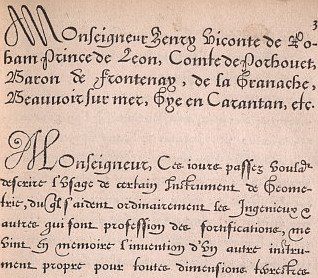 3
Monseigneur Henry Viconte de Ro-
han Prince de Leon, Comte de Porhouet,
Baron de Frontenay, de la Granache,
Beauuoir sur mer, Gye en Carantan, etc.
Monseigneur, Ces iours passez voulāt
descrire l'vsage de certain Instrument de Geome-
trie, du il s'aident ordinairement les Ingenieux &
autres qui font profession des fortifications, me
vint en memoire l'inuention d'vn autre instru-
ment propre pour toutes dimensions